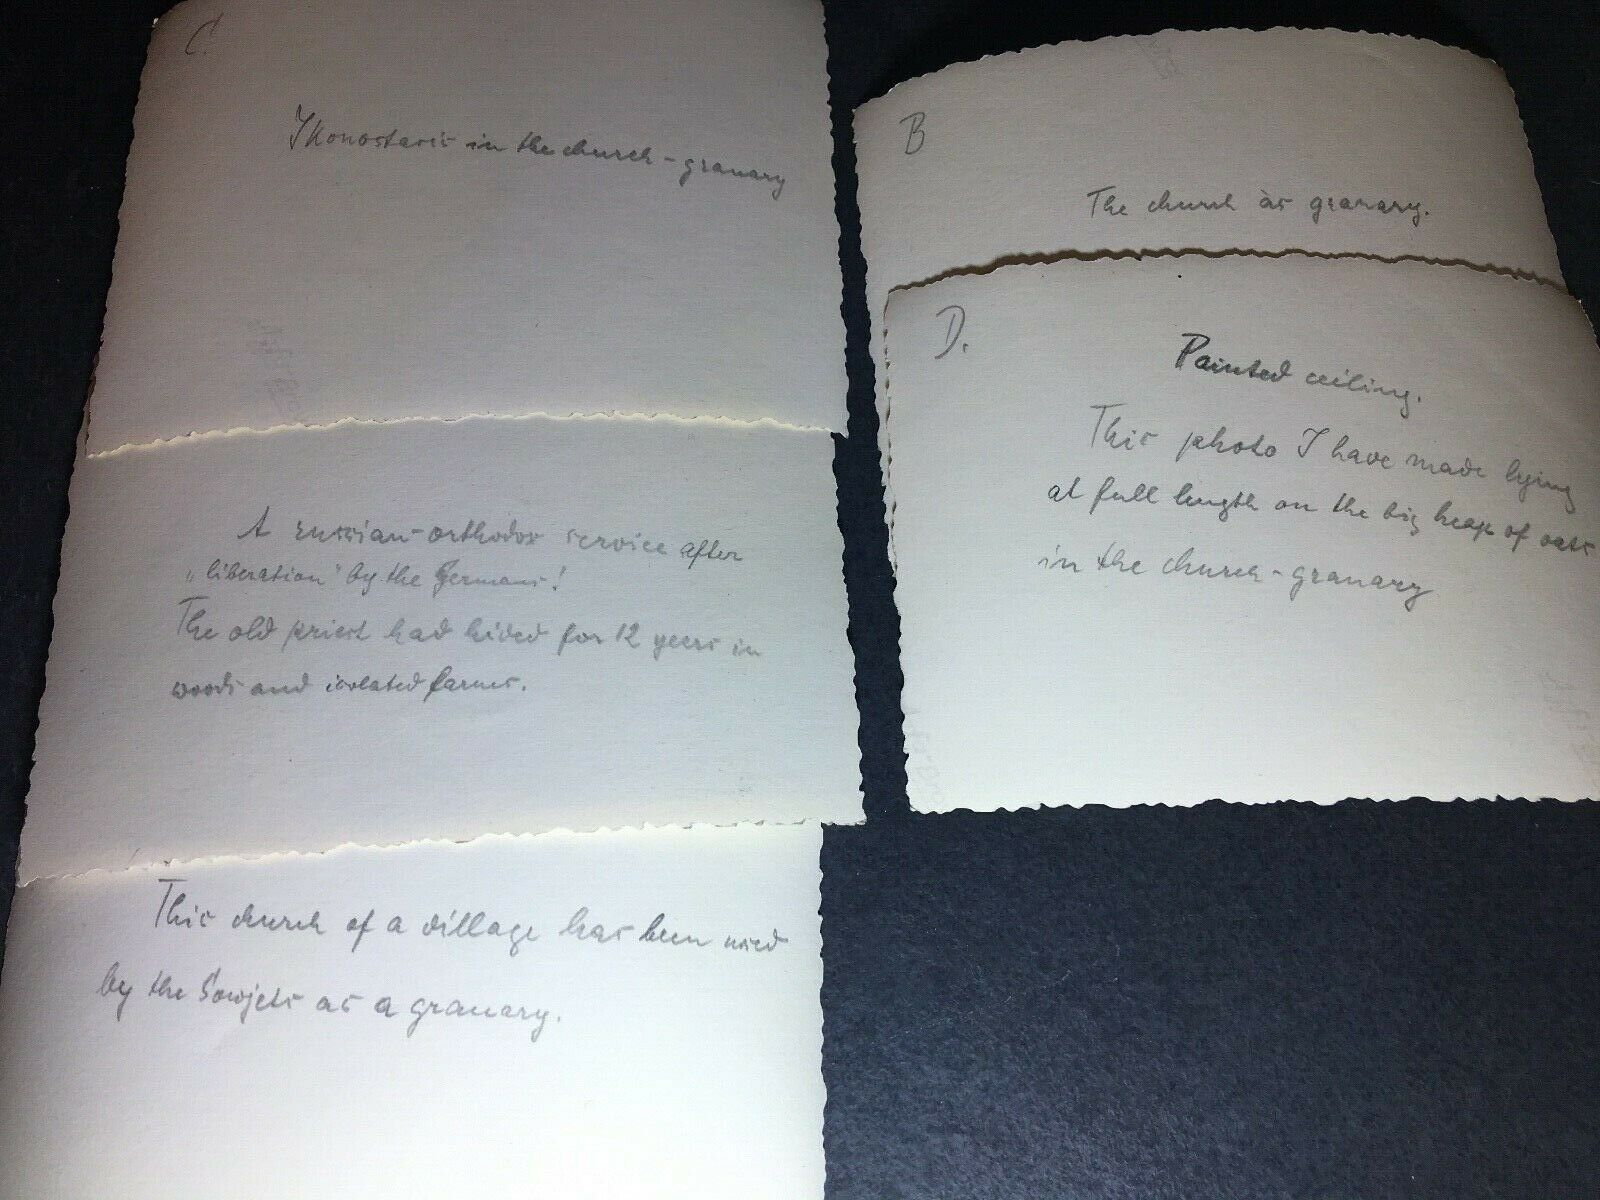 C.
Ikonostasis in the church-granary
A russian-orthodox service after
„liberation" by the Germans!
The old priest had hided for 12 years in
woods and isolated farms.
This church of a village has been used
by the Sowjets as a granary.
B
The church as granary.
D.
Painted ceiling.
This photo I have made lying
at full length on the big heap of oats
in the church-granary